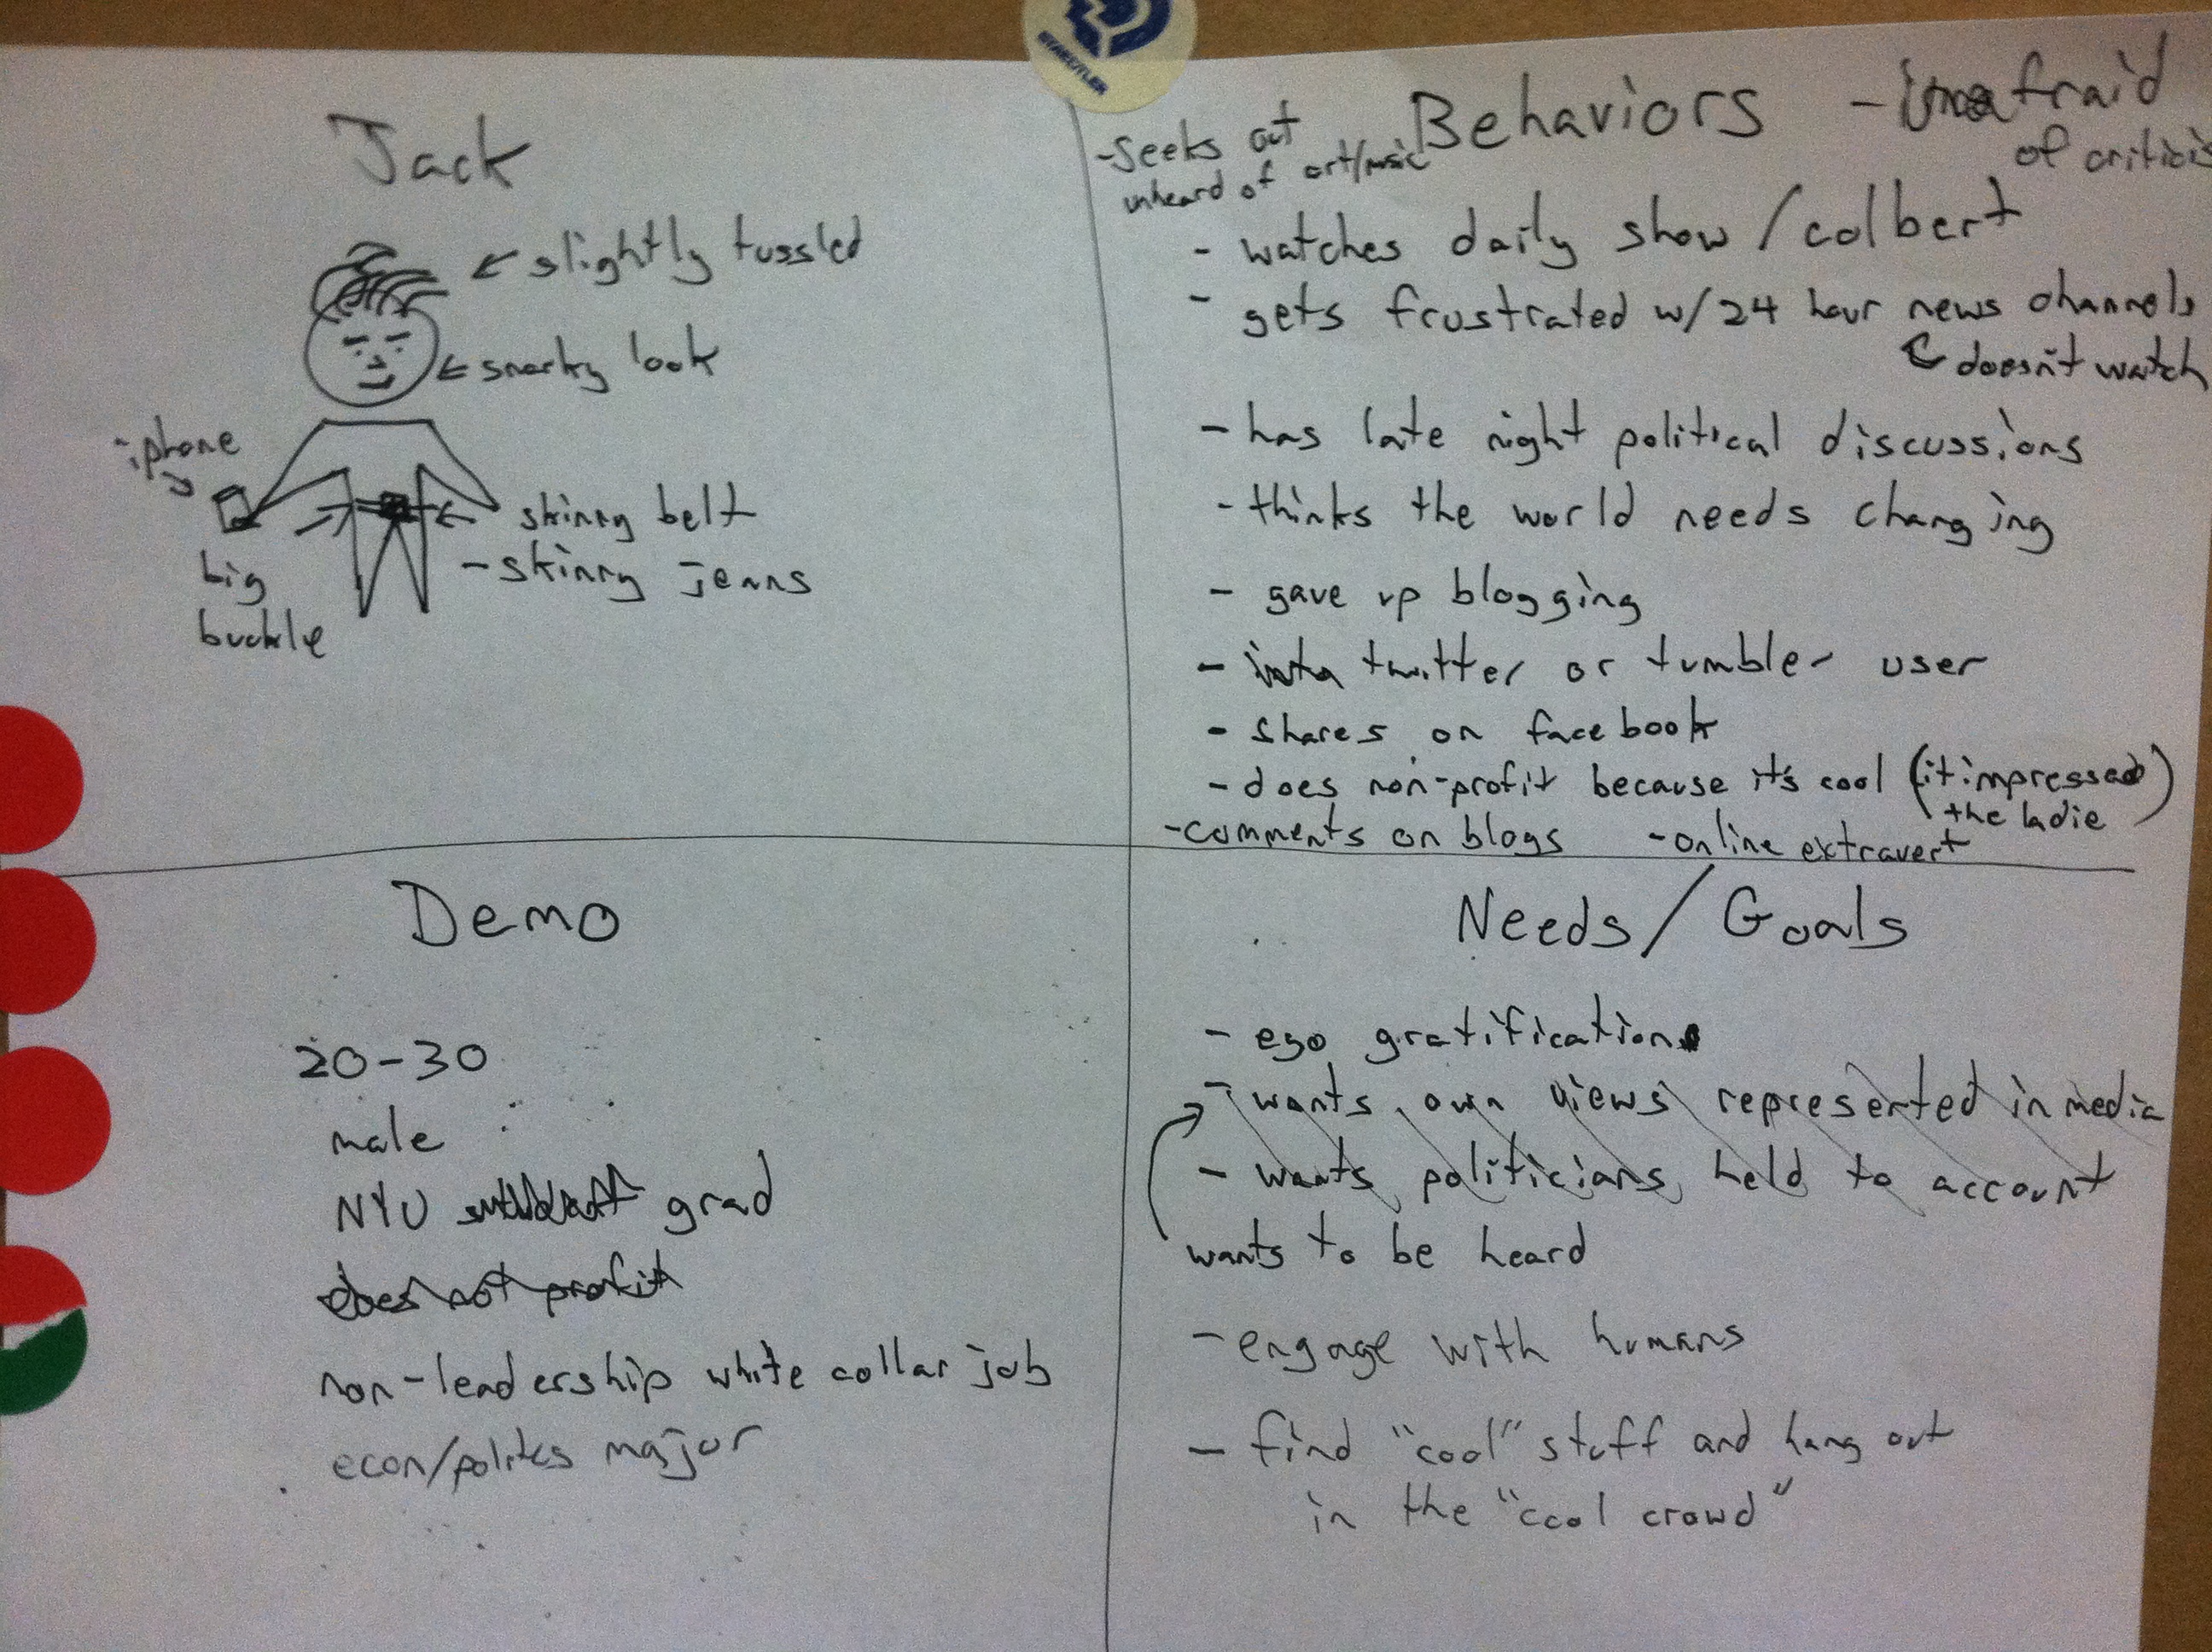 STAEDTLER
Jack
slightly tussled
snarky look
iphone
skinny belt
- skinny jeans
big
buckle
Behaviors
- Seeks out
unheard of art/music
- unafraid
of criticis
- watches daily show / colbert
- gets frustrated w/ 24 hour news channels
doesn't watch
- has late night political discussions
- thinks the world needs changing
- gave up blogging
- twitter or tumbler user
- shares on facebook
- does non-profit because it's cool (it impresses
the ladie)
- comments on blogs - online extravert
Demo
20-30
male
NYU student grad
does not profit
non-leadership white collar job
econ/politcs major
Needs / Goals
- ego gratification
- wants own views represented in media
- wants politicians held to account
wants to be heard
- engage with humans
- find "cool" stuff and hang out
in the "cool crowd"